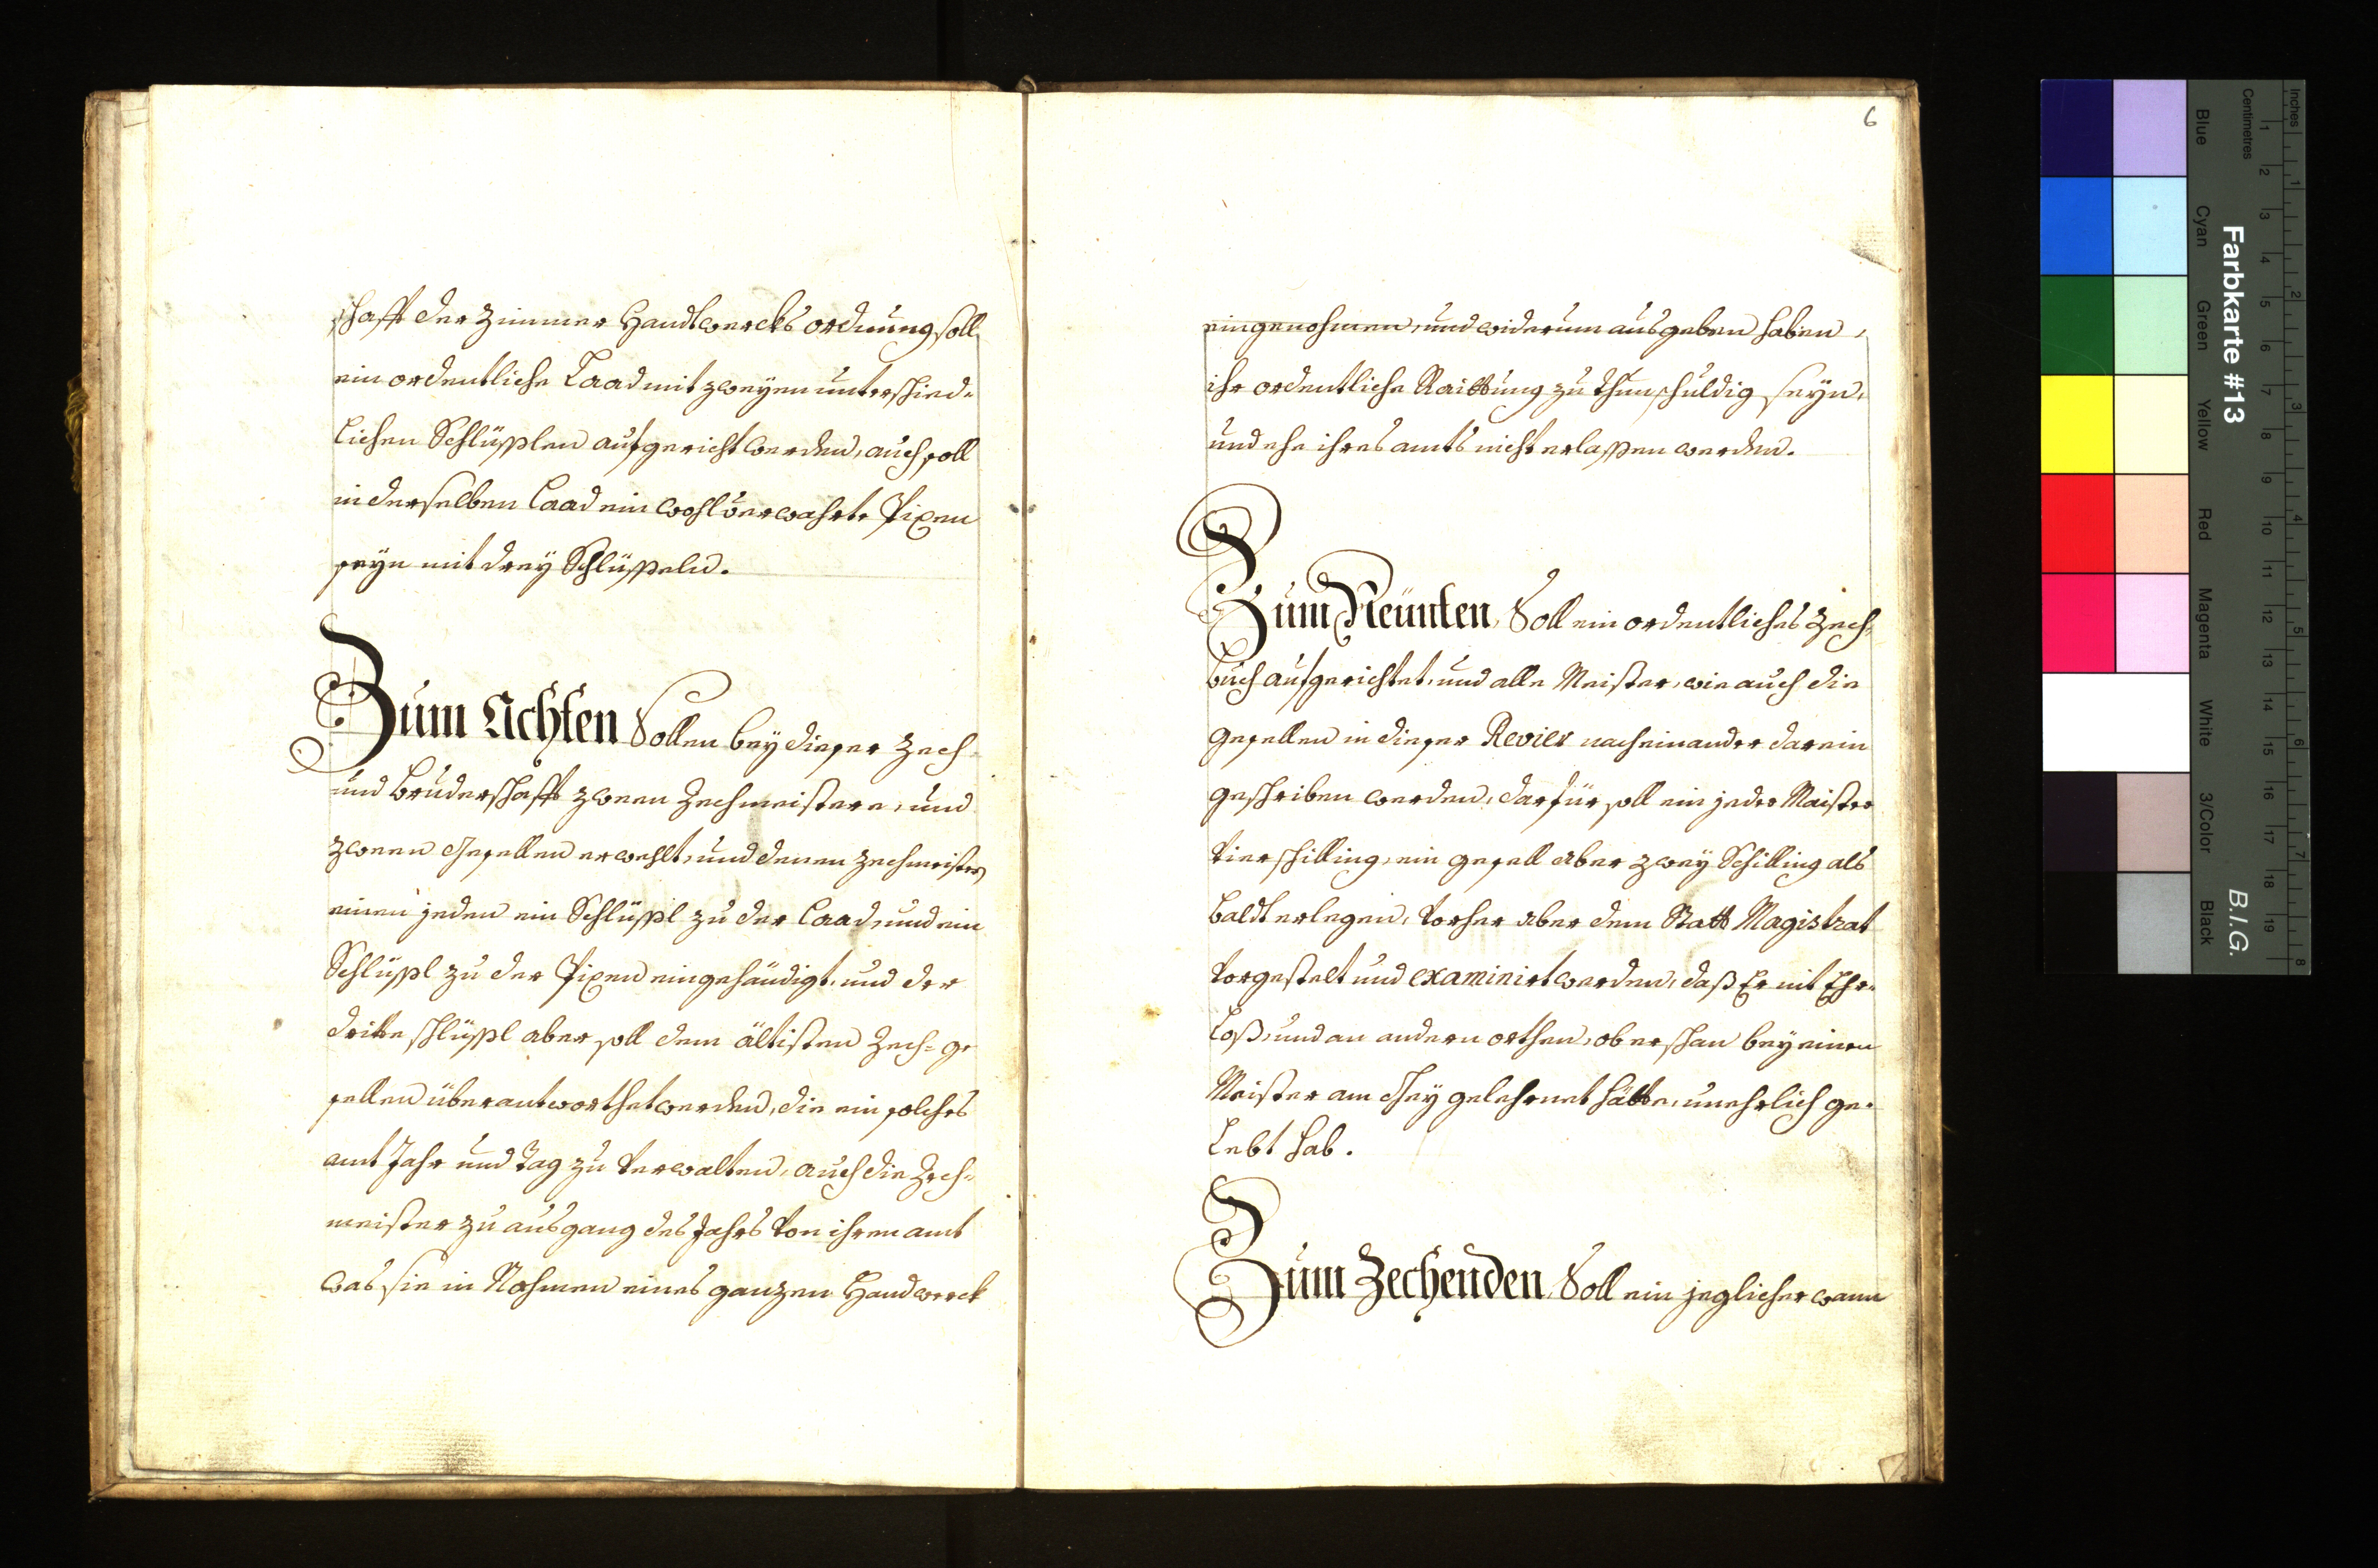 schafft der Zimmer Handtwercks ordnung soll
ein ordentliche Laad mit zweyen unterschied-
lichen Schlüsslen aufgericht werden, auch soll
in derselben Laad ein wohlverwahrte Pixen
seyn mit drey Schlüsseln.
Zum Achten Sollen bey dieser Zech-
und Bruderschafft zween Zechmeistere, und
zween Gesellen erwehlt, und denen Zechmeistern
einen jeden ein Schlüssl zu der Laad, und ein
Schlüssl zu der Pixen eingehändigt, und der
dritte schlüssl aber soll dem ältisten Zech-ge
sellen überantworthet werden, die ein solches
amt Jahr und Tag zu verwalten, auch die Zech-
meister zu ausgang des Jahrs von ihrem amt
was sie in Nahmen eines ganzen Handwerck
6
eingenohmen, und widerum ausgeben haben,
ihr ordentliche Raittung zu thun schuldig seyn,
und ehe ihres amts nicht erlassen werden.
Zum Neünten, Soll ein ordentliches Zech-
buch aufgerichtet, und alle Meister, wie auch die
gesellen in dieser Revier nach einander darein
geschriben werden, darfür soll ein jeder Maister
vier schilling, ein gesell aber zwey Schilling als
baldt erlegen, vorher aber dem Statt Magistrat
vorgestelt und examinirt werden, daß Er nit Ehr-
loß, und an andern orthen, ob er schan bey einen
Meister am Gey gelehrnet hätte, unehrlich ge-
lebt hab.
Zum Zechenden, Soll ein jeglicher wann
Farbkarte #13
B.I.G.
Inches
Centimetres
1 2 3 4 5 6 7 8 9 10 11 12 13 14 15 16 17 18 19
1 2 3 4 5 6 7 8
Blue
Cyan
Green
Yellow
Red
Magenta
White
3/Color
Black